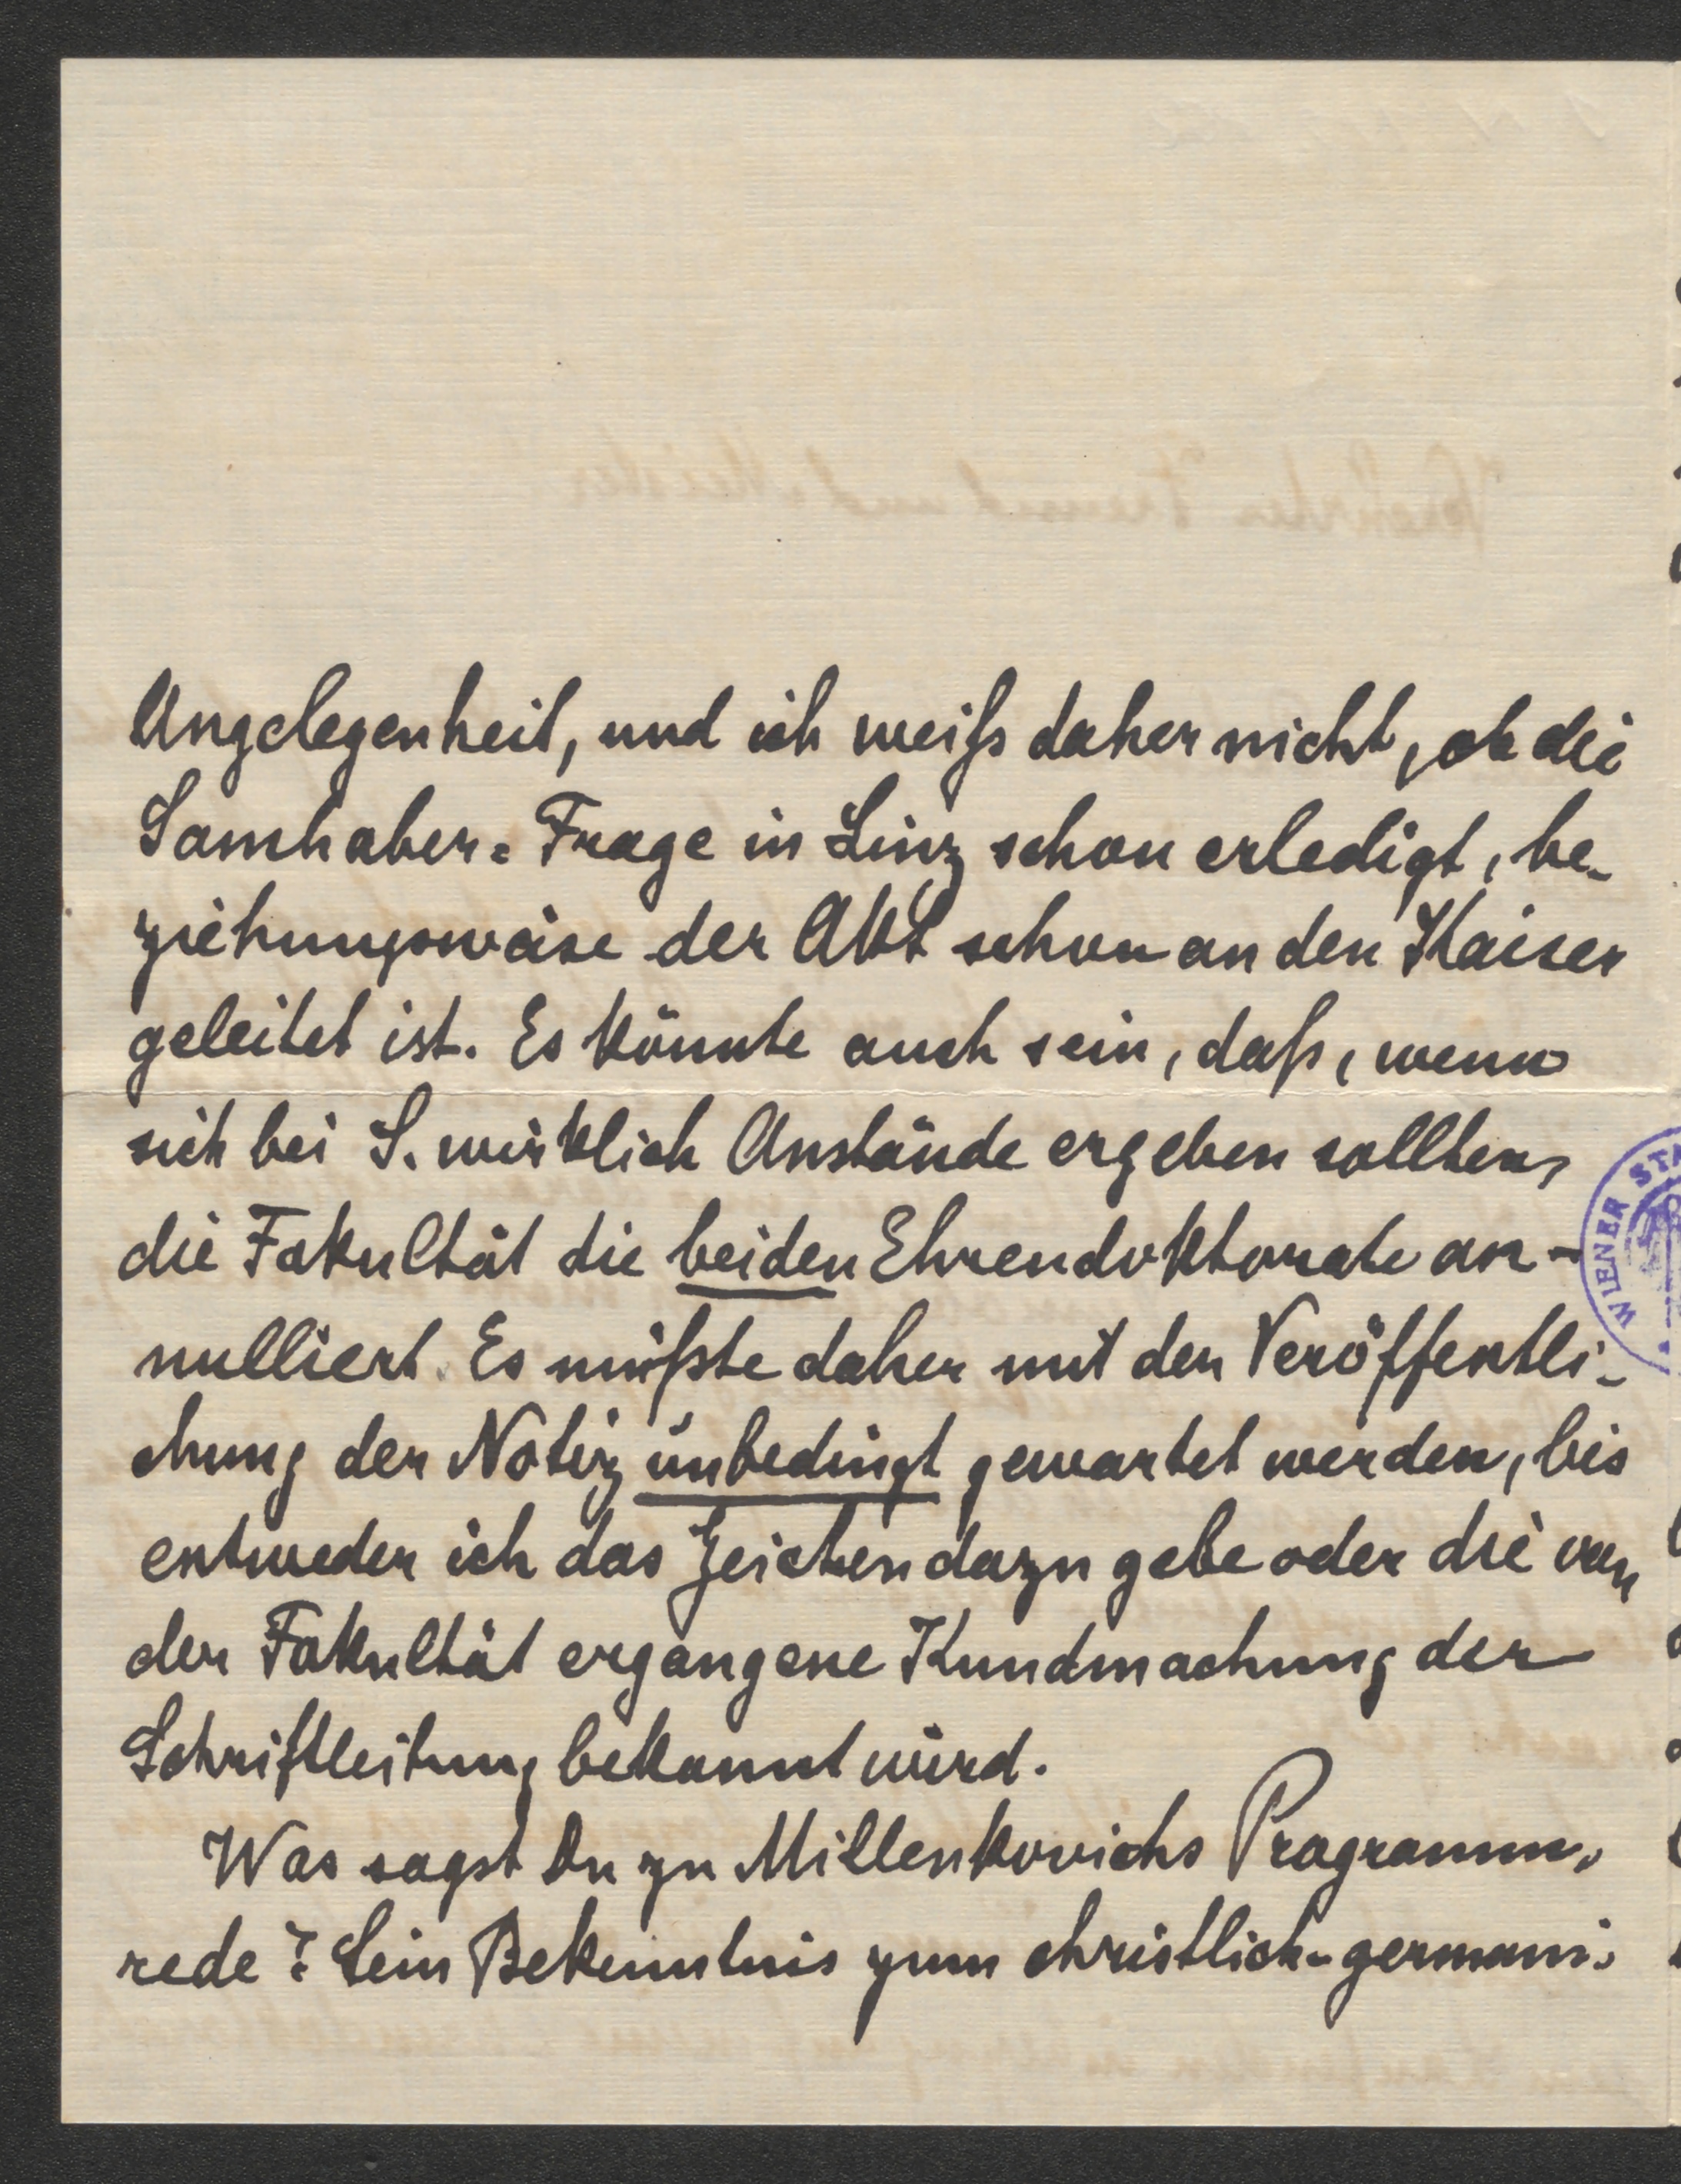 Angelegenheit, und ich weiß daher nicht, ob die
Samhaber-Frage in Linz schon erledigt, be-
ziehungsweise der Akt schon an den Kaiser
geleitet ist. Es könnte auch sein, daß, wenn
sich bei S. wirklich Anstände ergeben sollten,
die Fakultät die beiden Ehrendoktorate an-
nulliert. Es müßte daher mit der Veröffentli-
chung der Notiz unbedingt gewartet werden, bis
entweder ich das Zeichen dazu gebe oder die von
der Fakultät ergangene Kundmachung der
Schriftleitung bekannt wird.
Was sagst Du zu Millenkovichs Programm-
rede? Sein Bekenntnis zum christlich-germani-
WIENER STA